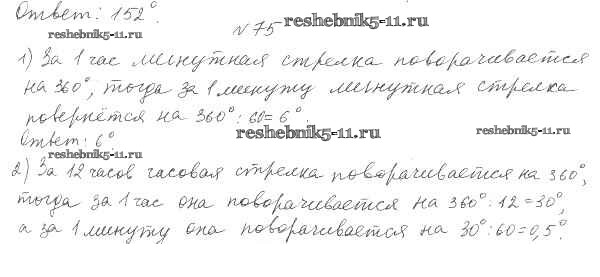 Ответ: 152°.
reshebnik5-11.ru
№ 75 reshebnik5-11.ru
1) За 1 час минутная стрелка поворачивается
на 360°, тогда за 1 минуту минутная стрелка
повернётся на 360° : 60 = 6°.
reshebnik5-11.ru
reshebnik5-11.ru
Ответ: 6°.
reshebnik5-11.ru
2) За 12 часов часовая стрелка поворачивается на 360°,
тогда за 1 час она поворачивается на 360° : 12 = 30°,
а за 1 минуту она поворачивается на 30° : 60 = 0,5°.